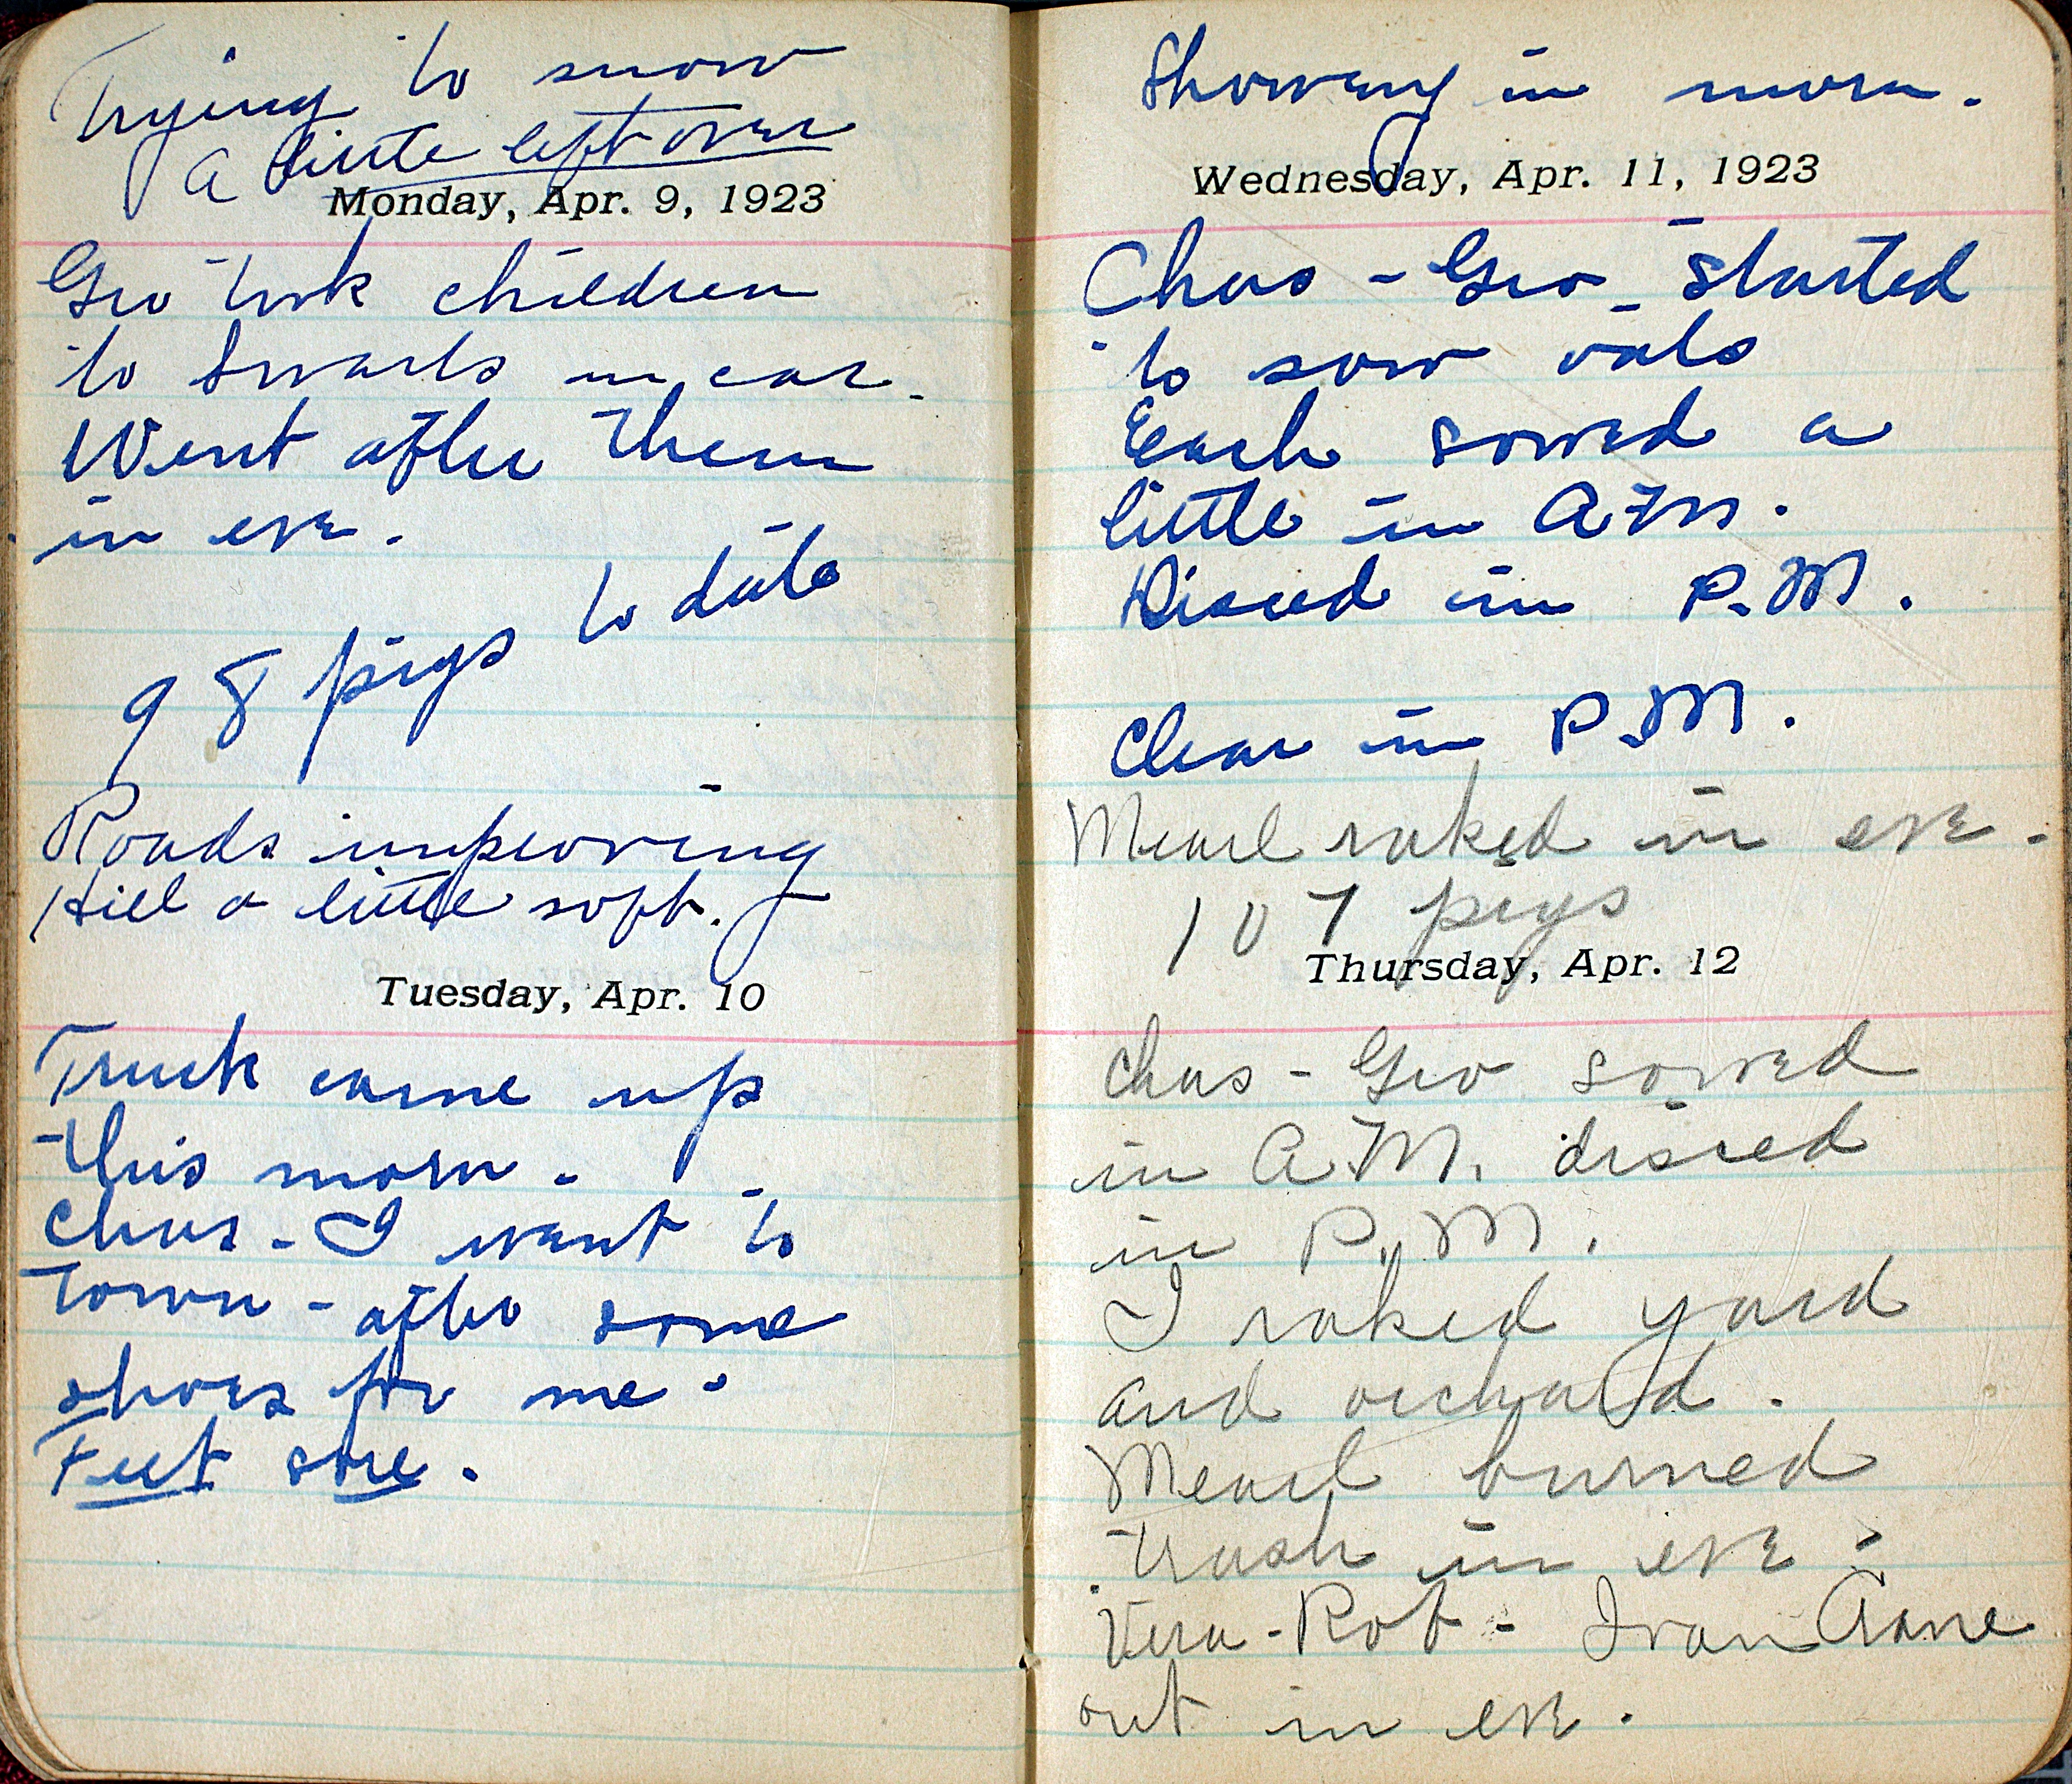 Trying to snow
a little left over
Monday, Apr. 9, 1923
Geo took children
to Swarts in car.
Went after them
in eve.
98 pigs to date
Roads improving
Hill a little soft.
Tuesday, Apr. 10
Truck came up
this morn.
Chas - I went to
Town - after some
shoes for me.
Feet sore.
Showery in morn.
Wednesday, Apr. 11, 1923
Chas - Geo - started
to sow oats
Each sowed a
little in A.M.
Disced in P.M.
Clear in P.M.
Mearl raked in eve.
107 pigs
Thursday, Apr. 12
Chas - Geo sowed
in A.M. disced
in P.M.
I raked yard
and orchard.
Mearl burned
trash in eve.
Vera - Rob - Ivan
out in eve.